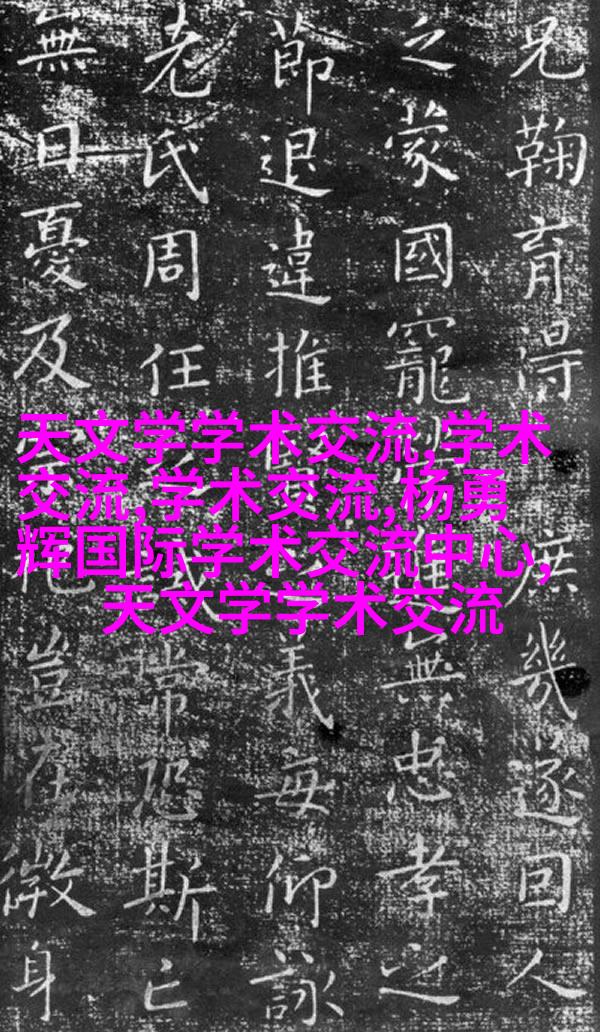 天文学学术交流,学术
交流,学术交流,杨勇
辉国际学术交流中心,
天文学学术交流
兄鞠育得庶幾遂回人
之蒙國寵無忠孝之
節退違推義每仰詠
老氏周任常恐斯亡
無日憂及豈在微身